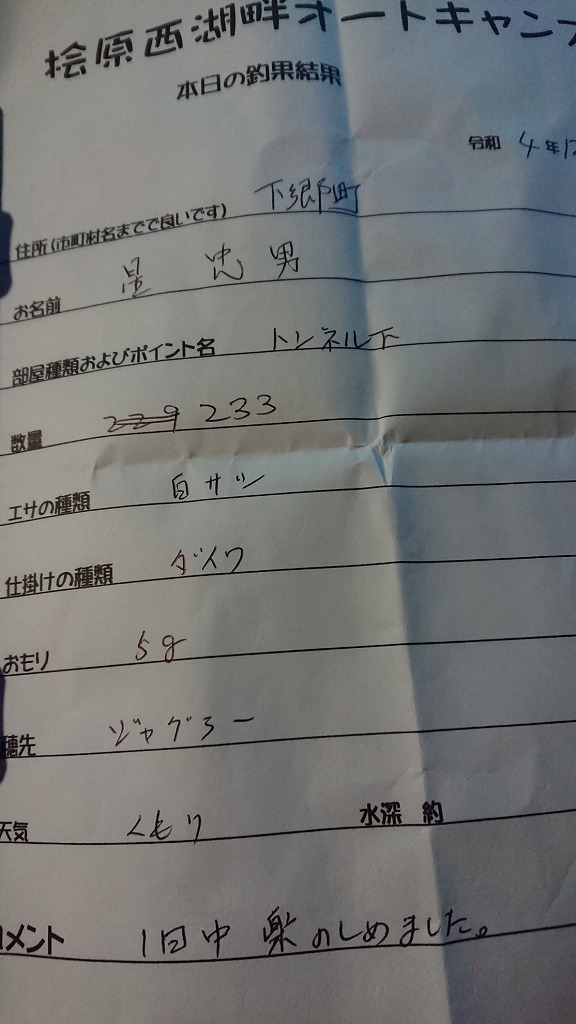 桧原西湖畔オートキャン
本日の釣果結果
令和 4年12
住所(市町村名までで良いです) 下郷町
お名前 星 忠男
部屋種類およびポイント名 トンネル下
数量 229 233
エサの種類 白サシ
仕掛けの種類 ダイワ
おもり 5g
穂先 ジャグラー
天気 くもり 水深 約
コメント 1日中楽のしめました。